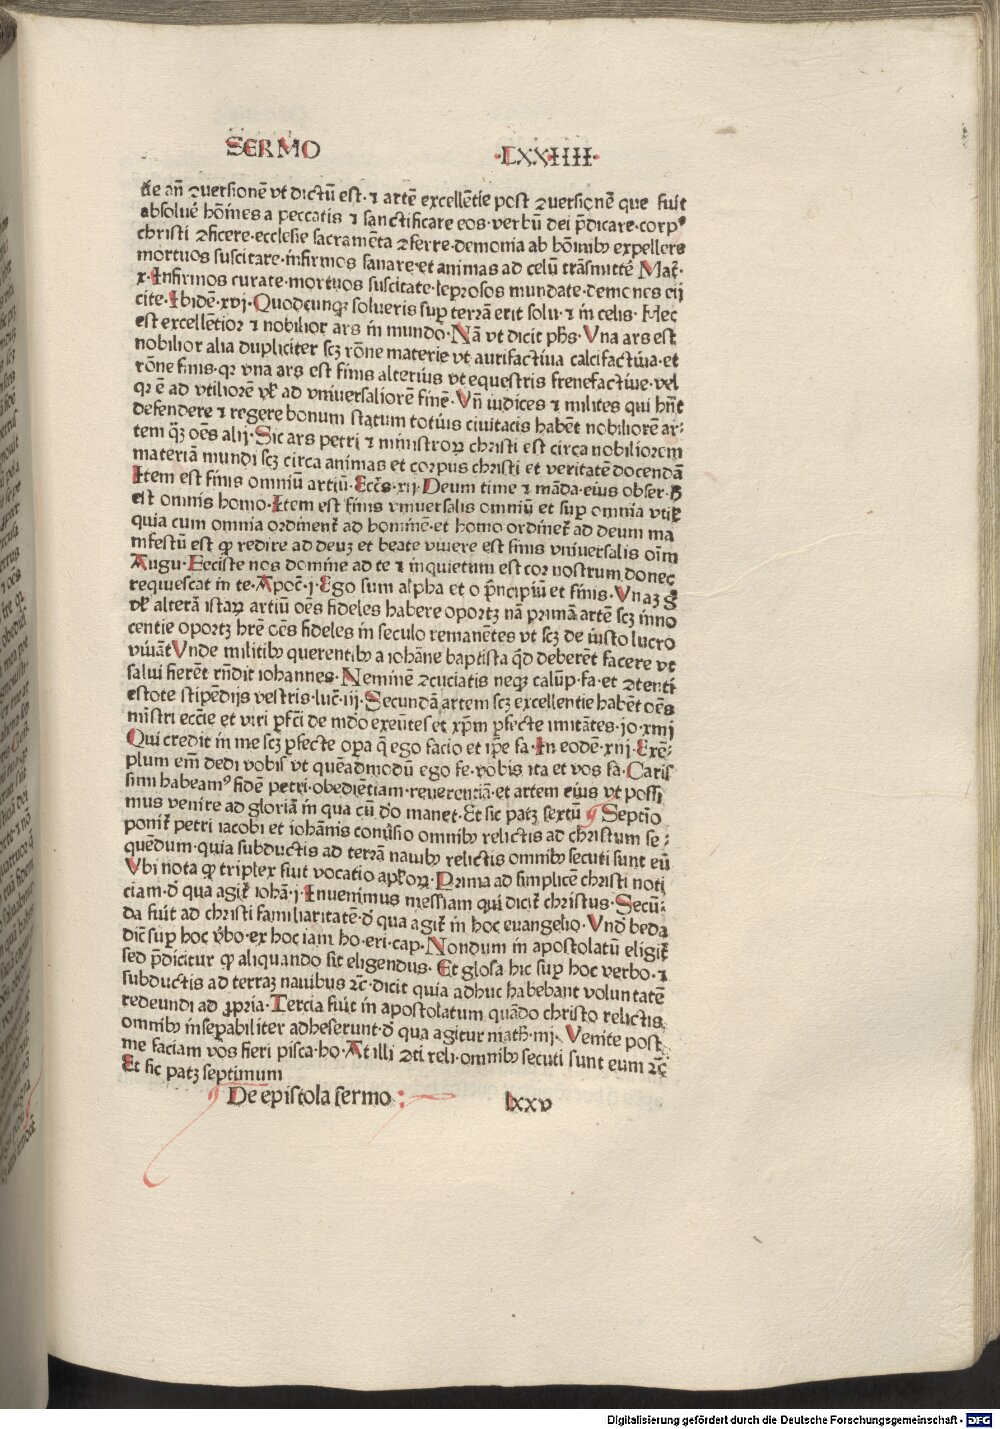 SERMO ·LXXIIII·
de añ ꝛuersionē vt dictū est· ⁊ artē excellētie post ꝛuersionē que fuit
absoluē hōines a peccatis ⁊ sanctificare eos·verbū dei p̄dicare·corpꝰ
christi ꝛficere·ecclesie sacramēta ꝛferre·demonia ab hōinibꝫ expellere
mortuos suscitare·infirmos sanare·et animas ad celū trāsmittē Mat̄·
x·Infirmos curate·mortuos suscitate·leprosos mundate·demones eij
cite·Ibidē·xvj·Quodcunqꝫ solueris sup̱ terrā erit solu·⁊ in celis·Hec
est excellētior ⁊ nobilior ars in mundo·Nā vt dicit ph̄s·Vna ars est
nobilior alia dupliciter scꝫ rōne materie vt aurifactiua calcifactiua·et
rōne finis·qꝛ vna ars est finis alterius vt equestris frenefactiue·vel
qꝛ ē ad vtiliorē vl̄ ad vniuersaliorē finē·Vn̄ iudices ⁊ milites qui hn̄t
defendere ⁊ regere bonum statum totius ciuitatis habēt nobiliorē ar-
tem qꝫ oēs alij·Sic ars petri ⁊ ministroꝝ christi est circa nobiliorem
materiam mundi scꝫ circa animas et corpus christi et veritatē docendā
Item est finis omniū artiū·Eccēs·xij·Deum time ⁊ māda·eius obser·H̄
est omnis homo·Item est finis vniuersalis omniū et sup̱ omnia vtil̄
quia cum omnia ordinent̄ ad hominē·et homo ordinet̄ ad deum ma
nifestū est ꝙ redire ad deuꝫ et beate viuere est finis vniuersalis oīm
Augu·Fecisti nos domine ad te ⁊ inquietum est cor nostrum donec
requiescat in te·Apoc̄·j·Ego sum alpha et o p̄ncipiū et finis·Vnaꝫ g̊
vl̄ alterā istaꝝ artiū oēs fideles habere oportꝫ nā primā artē scꝫ inno
centie oportꝫ hr̄e oēs fideles in seculo remanētes vt scꝫ de iusto lucro
viuāt Vnde militibꝫ querentibꝫ a iohāne baptista qd̄ deberēt facere vt
salui fierēt rn̄dit iohannes·Neminē ꝛcuciatis neqꝫ calūp·fa·et ꝛtenti
estote stipēdijs vestris·luc̄·iij·Secundā artem scꝫ excellentie habēt oēs
ministri eccīe et viri pfc̄i de mūdo exeūtes et xp̄m pfecte imitātes·io·xiiij
Qui credit in me scꝫ pfecte opa q̄ ego facio et ip̄e fa·In eodē·xiij·Exē-
plum em̄ dedi vobis vt quēadmodū ego fe·vobis ita et vos fa·Caris
simi habeamꝰ fidē petri·obediētiam·reuerentiā·et artem eius vt possi
mus venire ad gloriā in qua cū dn̄o manet·Et sic patꝫ sextū ¶ Septīo
ponit̄ petri iacobi et iohānis conūsio omnibꝫ relictis ad christum se-
quēdum·quia subductis ad terrā nauibꝫ relictis omnibꝫ secuti sunt eū
Vbi nota ꝙ triplex fuit vocatio apl̄oꝝ·Prima ad simplicē christi noti
ciam·d̄ qua agit̄ iohā·j·Inuenimus messiam qui dicit̄ christus·Secū-
da fuit ad christi familiaritatē·d̄ qua agit̄ in hoc euangelio·Vnd̄ beda
dic̄ sup̱ hoc v̄bo·ex hoc iam ho·eri·cap·Nondum in apostolatū eligit̄
sed p̄dicitur ꝙ aliquando sit eligendus·Et glosa hic sup̱ hoc verbo·⁊
subductis ad terraꝫ nauibus ⁊c̄·dicit quia adhuc habebant voluntatē
redeundi ad ꝓpria·Tercia fuit in apostolatum quādo christo relictis
omnibꝫ inseparabiliter adheserunt·d̄ qua agitur math̄·iiij·Venite post
me faciam vos fieri pisca·ho·At illi ꝛti·reli·omnibꝫ secuti sunt eum ⁊c̄
Et sic patꝫ septimum
¶ De epistola sermo : lxxv
Digitalisierung gefördert durch die Deutsche Forschungsgemeinschaft - DFG